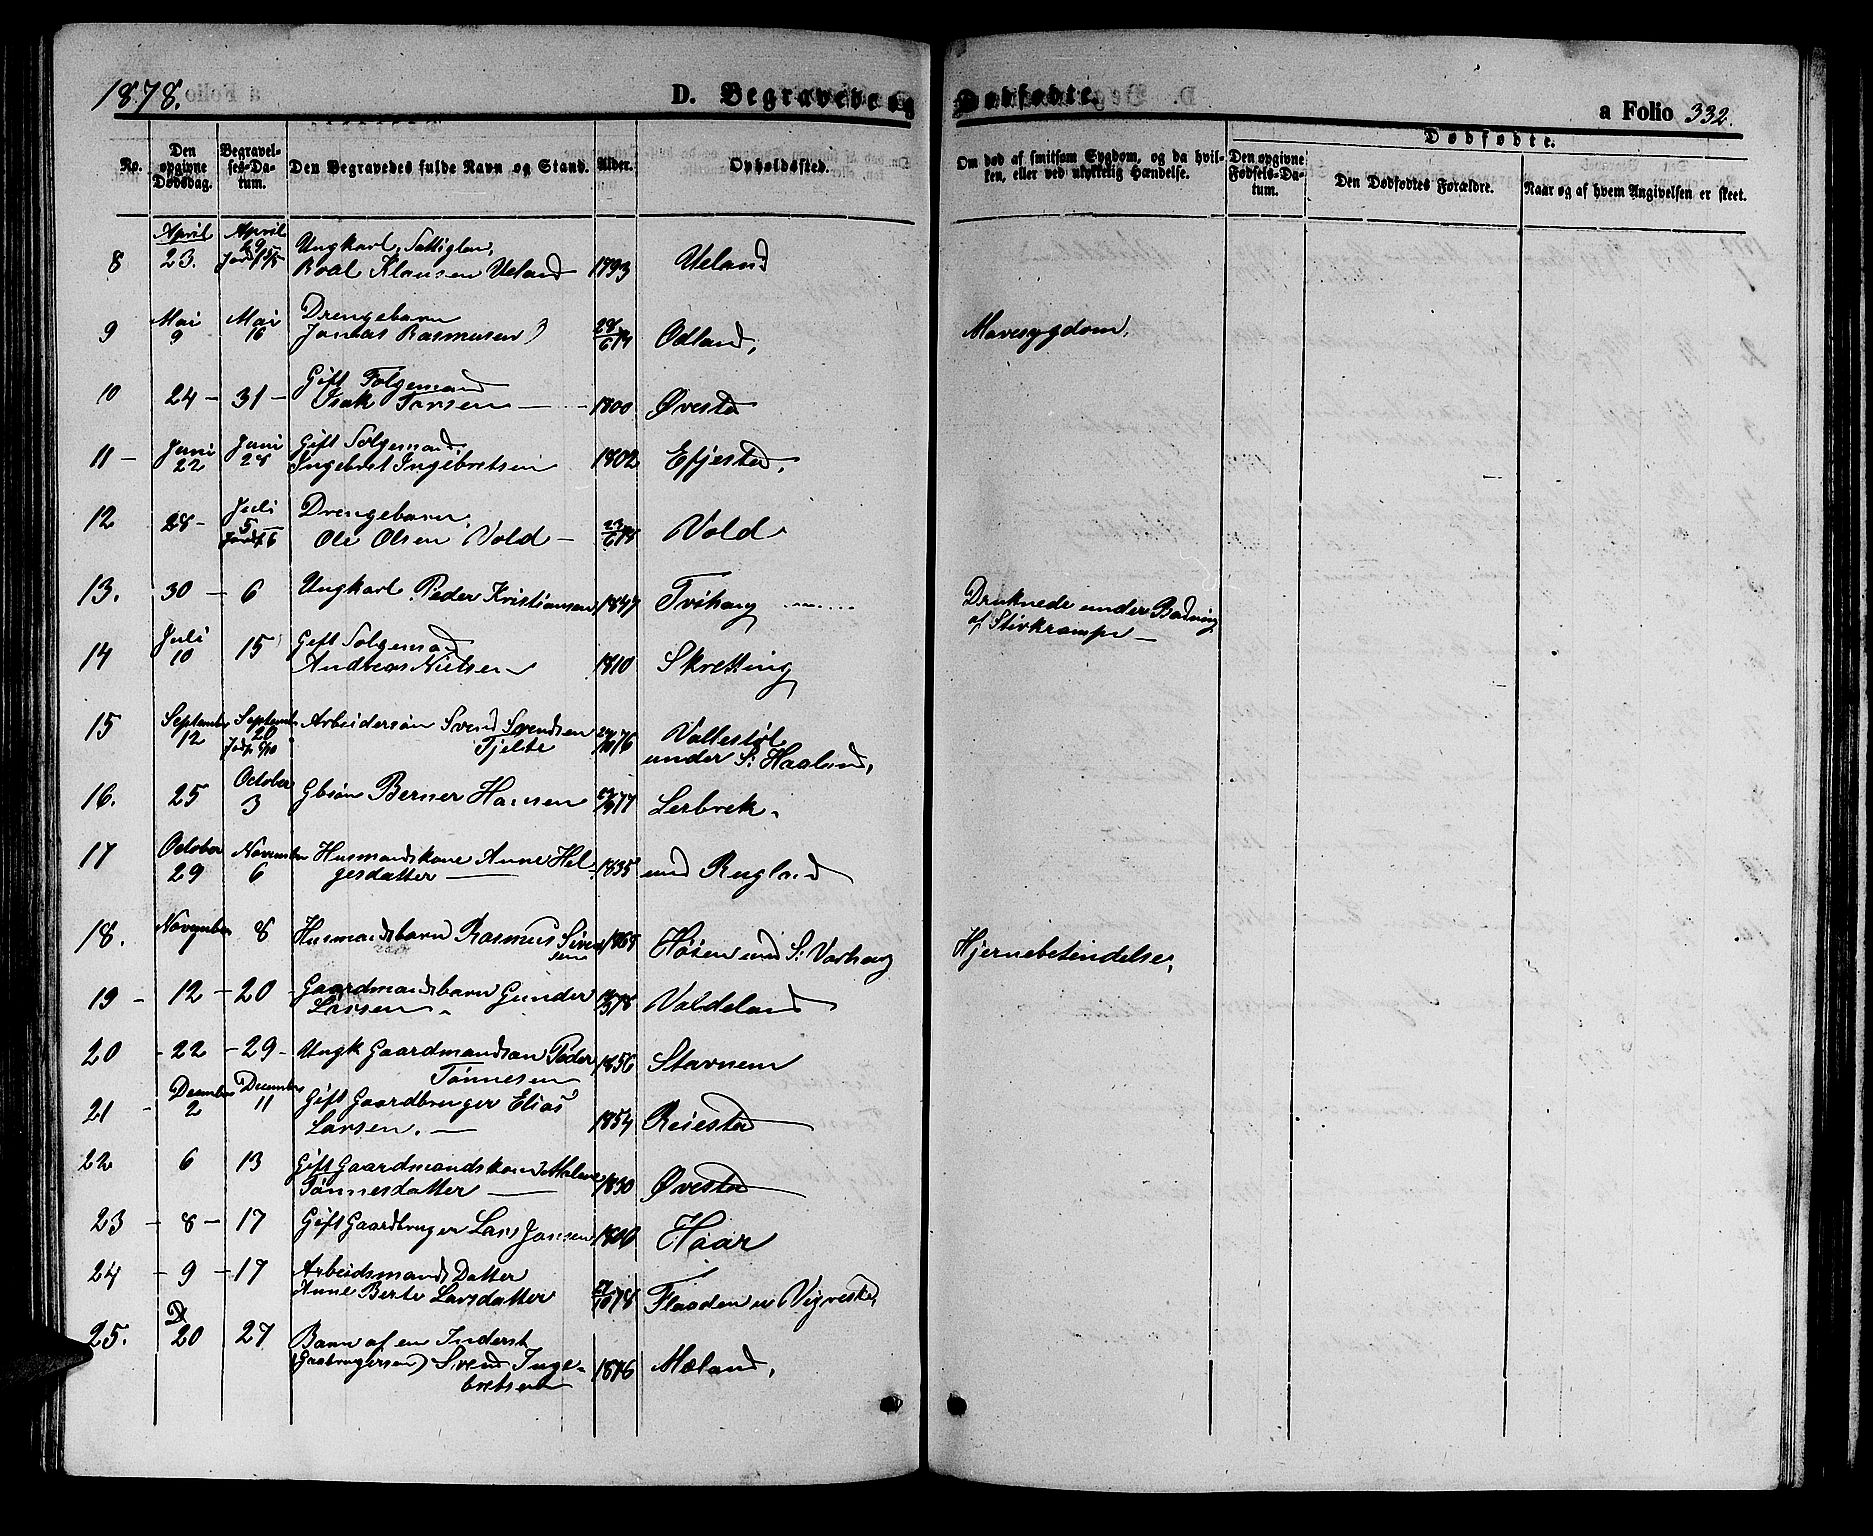 1878.
D. Begravede og Dødfødte.
a Folio 332.
No.
Den opgivne Dødsdag.
Begravelses-Datum.
Den Begravedes fulde Navn og Stand.
Alder.
Opholdssted.
Om død af smitsom Sygdom, og da hvilken, eller ved ulykkelig Hændelse.
Dødfødte.
Den opgivne Fødsels-Datum.
Den Dødfødtes Forældre.
Naar og af hvem Angivelsen er skeet.
8 April 23. April Ungkarl,
Roal Klausen Ueland 1793 Ueland
9 Mai 9 Mai 16 Drengebarn
Jonas Rasmusen Odland, Mavesygdom.
10 24 - 31 - Gift Folgemand
Isak Torsen 1800 Øvested
11 - Juni 22 Juni 28 Gift Folgemand,
Ingebret Ingebretsen 1802 Efjested,
12 28 - Juli 5 Drengebarn,
Ole Olsen Vold - 23/6 78 Vold
13. 30 - 6 Ungkarl Peder Kristiansen 1847 Tvihaug Druknede under Badning
af Stivkrampe -
14 Juli 10 15 Gift Folgemand
Andreas Nielsen 1810 Skretting
15 September 12 September 20 Arbeidersøn Svend Svendsen
Tjelte 76 Vallestøl
under S. Haaland,
16. 25 October 3 Gbsøn Berner Hansen 77 Lerbrek.
17 October 29 November 6 Husmandskone Anne Hel-
gesdatter 1835 und Rugland
18. November 8 Husmandsbarn Rasmus Siven-
sen 1868 Høien und S. Varhaug Hjernebetendelse,
19 - 12 - 20 - Gaardmandsbarn Gunder
Larsen 78 Valdeland
20 - 22 - 29 - Ungk Gaardmandsøn Peder
Tønnesen 1856 Stavnem
21 - December 2 December 11 Gift Gaardbruger Elias
Larsen. - 1854 Reiestad
22 6 13 Gift Gaardmandskone Malene
Tønnesdatter 1830 Øvested
23 - 8 - 17 Gift Gaardbruger Lars Jansen Haar
24 - 9 - 17 Arbeidsmands Datter
Anne Berte Larsdatter 78 Flaaden u Vigrested,
25. D 20 27 Barn af en Inderst
(Gaabrugersøn) Svend Inge-
bretsen 1876 Mæland,